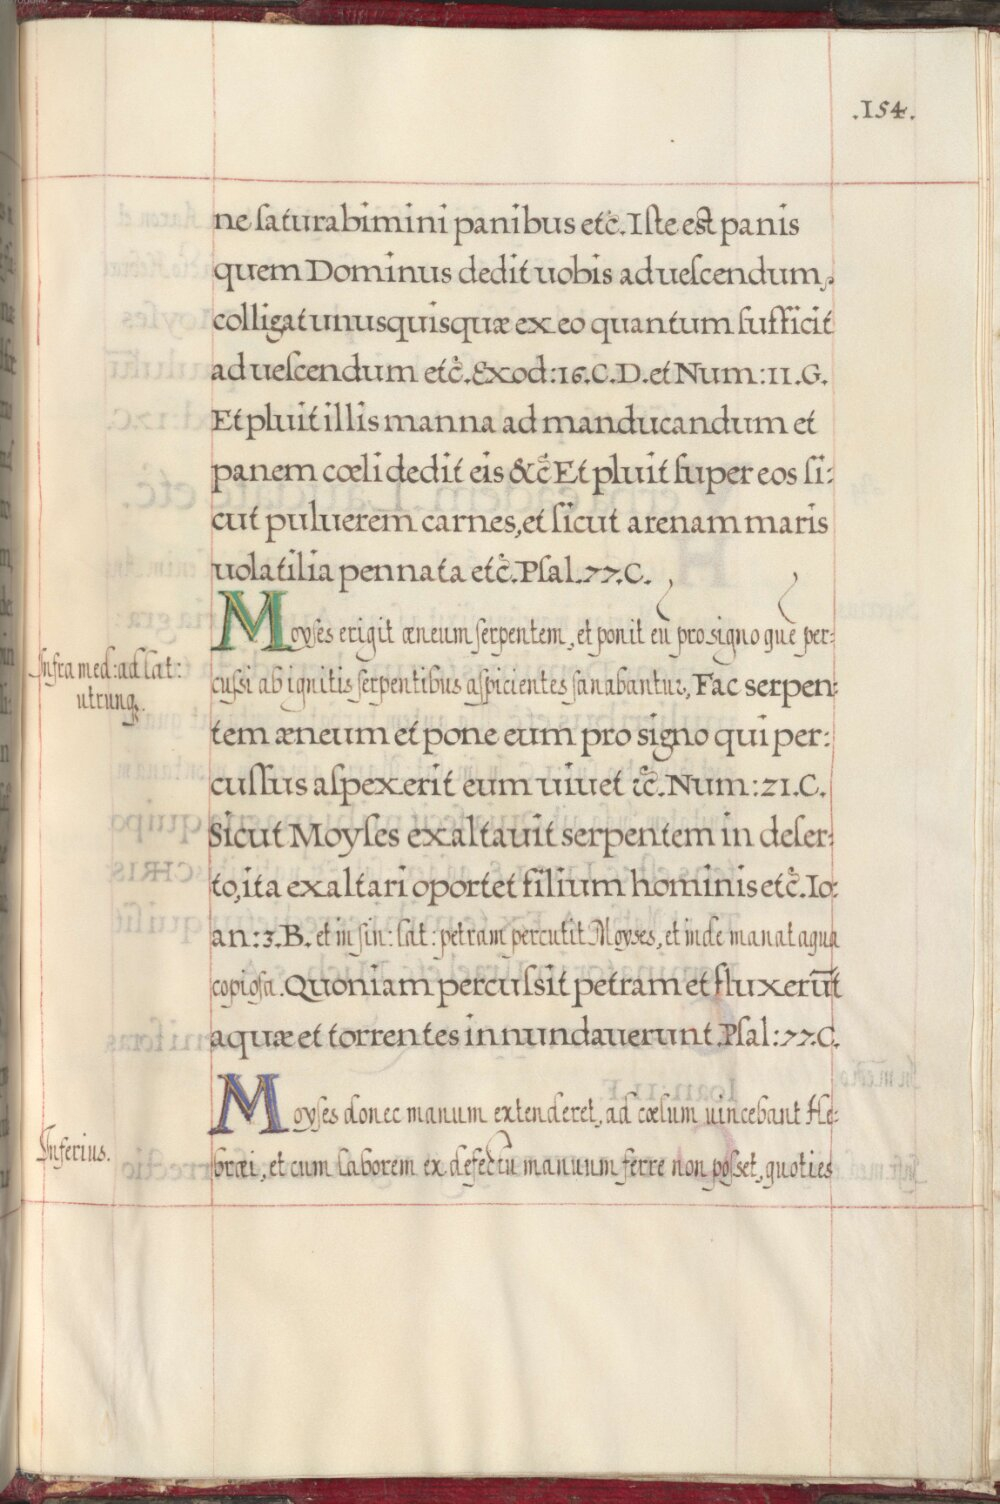 .154.
ne ſaturabimini panibus etc̃. Iſte eſt panis
quem Dominus dedit uobis ad ueſcendum,
colligat unusquisquæ ex eo quantum ſufficit
ad ueſcendum etc̃. Exod:16.C.D. et Num:11.G.
Et pluit illis manna ad manducandum et
panem cœli dedit eis &c̃ Et pluit ſuper eos ſi:
cut puluerem carnes, et ſicut arenam maris
uolatilia pennata etc̃. Pſal.77.C.
Moyſes erigit æneum ſerpentem, et ponit eũ pro signo quẽ per:
Infra med: ad lat:
utrunq.
cuſſi ab ignitis ſerpentibus aſpicientes ſanabantur, Fac serpen:
tem æneum et pone eum pro signo qui per:
cuſſus aſpexerit eum uiuet ⁊c̃. Num:21.C.
Sicut Moyſes exaltauit serpentem in deſer:
to, ita exaltari oportet filium hominis etc̃. Io:
an:3.B. et in ſin: lat: petram percutit Moyses, et inde manat aqua
copioſa. Quoniam percuſsit petram et fluxerũt
aquæ et torrentes innundauerunt. Pſal:77.C.
Moyſes donec manum extenderet, ad cœlum uincebant He:
Inferius.
bræi, et cum laborem ex defectu manuum ferre non poſſet, quoties